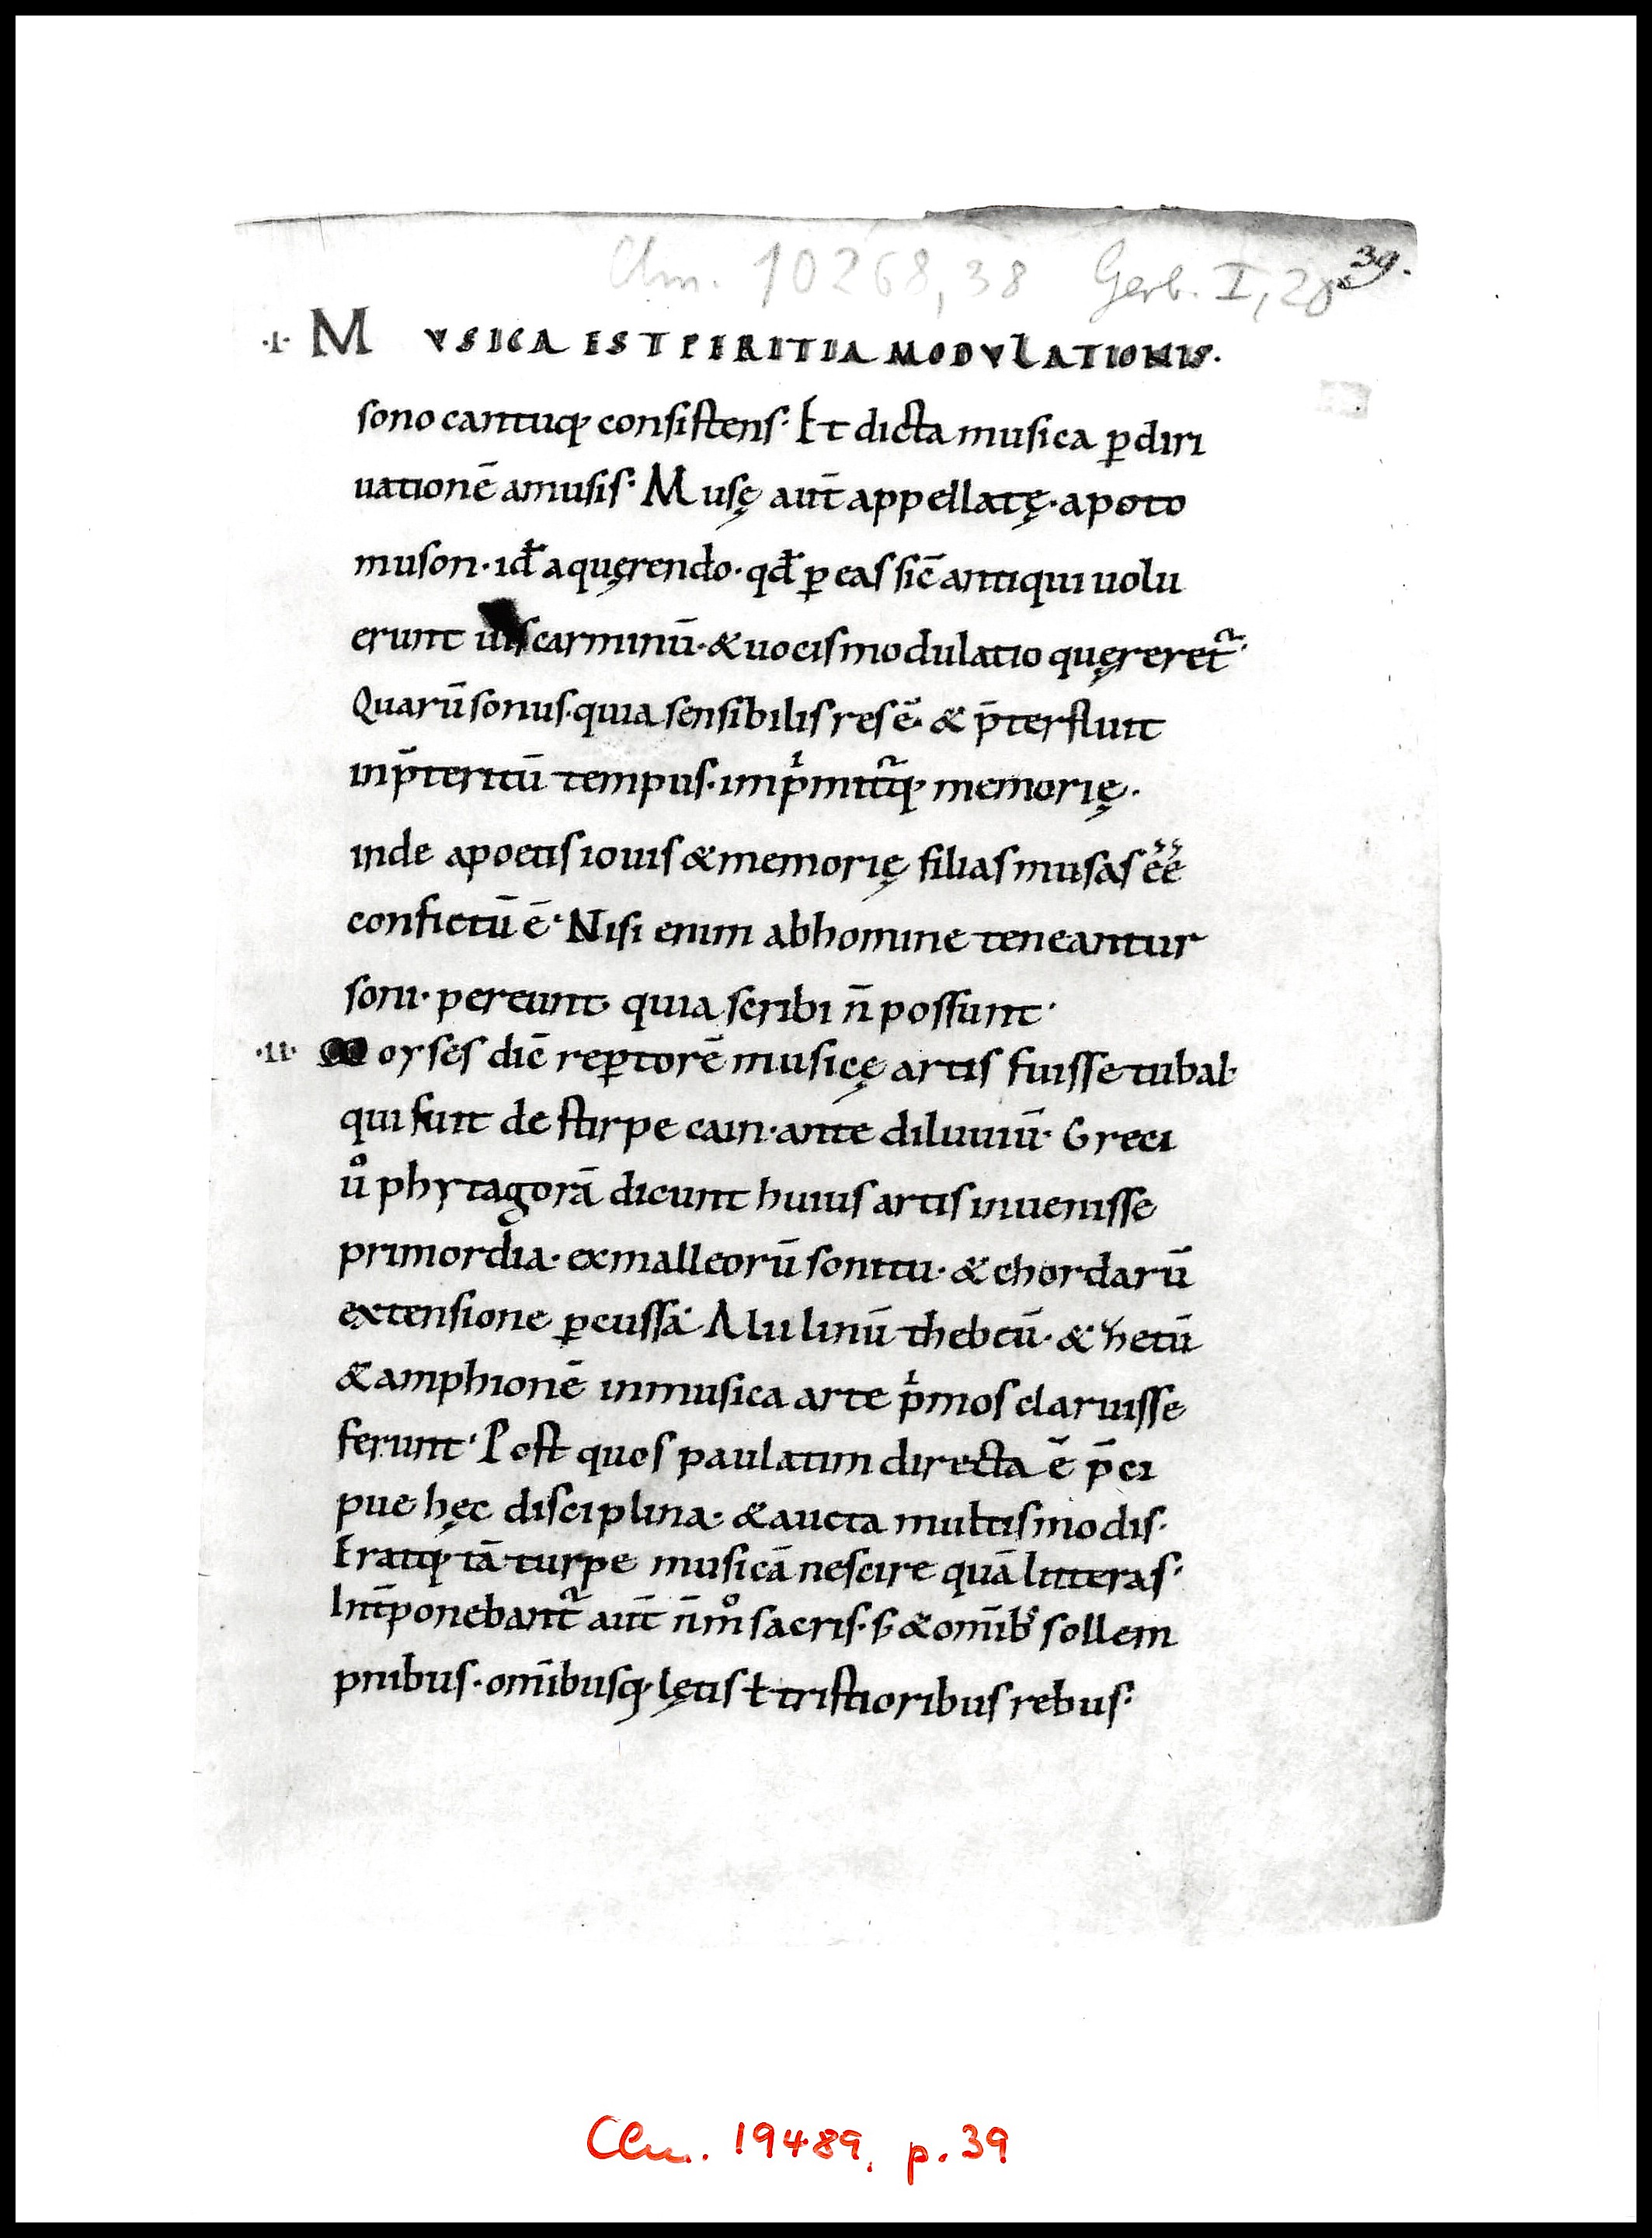 Clm. 10268, 38 Gerb. I, 20
39.
·I· MVSICA EST PERITIA MODVLATIONIS.
sono cantuq; consistens· Et dicta musica ꝑ diri
uationē a musis· Musę aut̄ appellatę· apoto
muson· id̄ a quęrendo· qd̄ ꝑ eas sic̄ antiqui uolu
erunt uis carminū· & uocis modulatio quęreret᷑·
Quarū sonus· quia sensibilis res ē· & p̄terfluit
in p̄teritū tempus· impͥmit᷑q; memorię·
inde a poetis iouis & memorię filias musas ee̅
confictū ē· Nisi enim ab homine teneantur
soni· pereunt quia scribi n̄ possunt·
·II· Moyses dic̄ reꝑtorē musicę artis fuisse tubal·
qui fuit de stirpe cain· ante diluuiū· Greci
uͦ phytagorā dicunt huius artis inuenisse
primordia· ex malleorū sonitu· & chordarū
extensione ꝑcussa· Alii linū thebeū· & hetū
& amphionē in musica arte pͥmos claruisse
ferunt· Post quos paulatim directa ē p̄ci
pue hęc disciplina· & aucta multis modis·
Eratq; tā turpe musicā nescire quā litteras·
Int̄ponebant᷑ aut̄ n̄ mͦ sacris· s; & omīb; sollem
pnibus· omībusq; lętis ł tristioribus rebus·
Clm. 19489, p. 39